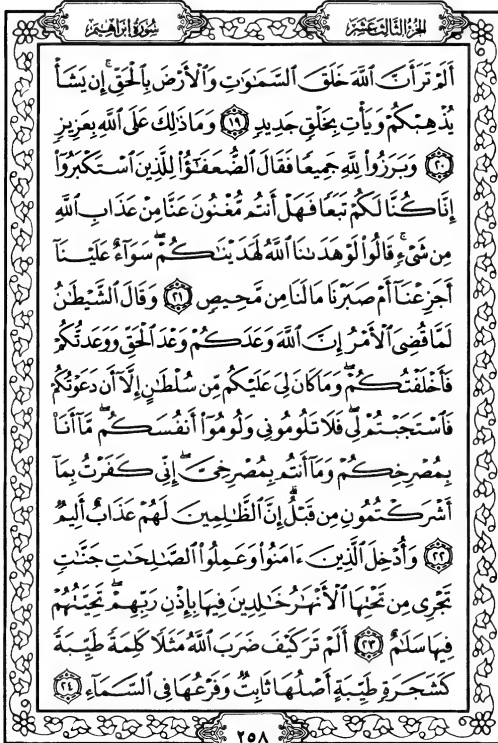 سُورَةُ إِبْرَاهِيم
الجُزْءُ الثَّالِثَ عَشَرَ
أَلَمْ تَرَ أَنَّ ٱللَّهَ خَلَقَ ٱلسَّمَٰوَٰتِ وَٱلْأَرْضَ بِٱلْحَقِّ ۚ إِن يَشَأْ
يُذْهِبْكُمْ وَيَأْتِ بِخَلْقٍ جَدِيدٍ ١٩ وَمَا ذَٰلِكَ عَلَى ٱللَّهِ بِعَزِيزٍ
٢٠ وَبَرَزُوا۟ لِلَّهِ جَمِيعًا فَقَالَ ٱلضُّعَفَٰٓؤُا۟ لِلَّذِينَ ٱسْتَكْبَرُوٓا۟
إِنَّا كُنَّا لَكُمْ تَبَعًا فَهَلْ أَنتُم مُّغْنُونَ عَنَّا مِنْ عَذَابِ ٱللَّهِ
مِن شَىْءٍ ۚ قَالُوا۟ لَوْ هَدَىٰنَا ٱللَّهُ لَهَدَيْنَٰكُمْ ۖ سَوَآءٌ عَلَيْنَآ
أَجَزِعْنَآ أَمْ صَبَرْنَا مَا لَنَا مِن مَّحِيصٍ ٢١ وَقَالَ ٱلشَّيْطَٰنُ
لَمَّا قُضِىَ ٱلْأَمْرُ إِنَّ ٱللَّهَ وَعَدَكُمْ وَعْدَ ٱلْحَقِّ وَوَعَدتُّكُمْ
فَأَخْلَفْتُكُمْ ۖ وَمَا كَانَ لِىَ عَلَيْكُم مِّن سُلْطَٰنٍ إِلَّآ أَن دَعَوْتُكُمْ
فَٱسْتَجَبْتُمْ لِى ۖ فَلَا تَلُومُونِى وَلُومُوٓا۟ أَنفُسَكُم ۖ مَّآ أَنَا۠
بِمُصْرِخِكُمْ وَمَآ أَنتُم بِمُصْرِخِىَّ ۖ إِنِّى كَفَرْتُ بِمَآ
أَشْرَكْتُمُونِ مِن قَبْلُ ۗ إِنَّ ٱلظَّٰلِمِينَ لَهُمْ عَذَابٌ أَلِيمٌ
٢٢ وَأُدْخِلَ ٱلَّذِينَ ءَامَنُوا۟ وَعَمِلُوا۟ ٱلصَّٰلِحَٰتِ جَنَّٰتٍ
تَجْرِى مِن تَحْتِهَا ٱلْأَنْهَٰرُ خَٰلِدِينَ فِيهَا بِإِذْنِ رَبِّهِمْ ۖ تَحِيَّتُهُمْ
فِيهَا سَلَٰمٌ ٢٣ أَلَمْ تَرَ كَيْفَ ضَرَبَ ٱللَّهُ مَثَلًا كَلِمَةً طَيِّبَةً
كَشَجَرَةٍ طَيِّبَةٍ أَصْلُهَا ثَابِتٌ وَفَرْعُهَا فِى ٱلسَّمَآءِ ٢٤
٢٥٨